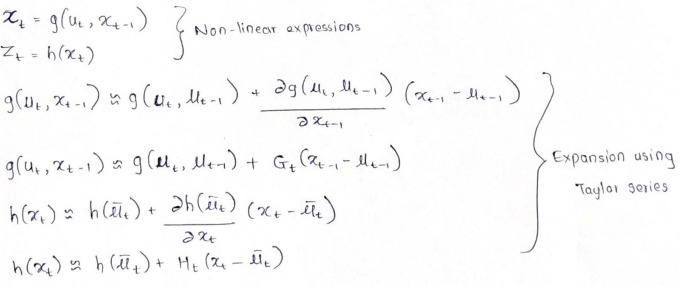 xₜ = g(uₜ, xₜ₋₁)
Zₜ = h(xₜ)
} Non-linear expressions
g(uₜ, xₜ₋₁) ≈ g(uₜ, μₜ₋₁) + ∂g(uₜ, μₜ₋₁)/∂xₜ₋₁ (xₜ₋₁ - μₜ₋₁)
g(uₜ, xₜ₋₁) ≈ g(uₜ, μₜ₋₁) + Gₜ(xₜ₋₁ - μₜ₋₁)
h(xₜ) ≈ h(μ̄ₜ) + ∂h(μ̄ₜ)/∂xₜ (xₜ - μ̄ₜ)
h(xₜ) ≈ h(μ̄ₜ) + Hₜ(xₜ - μ̄ₜ)
} Expansion using
Taylor series